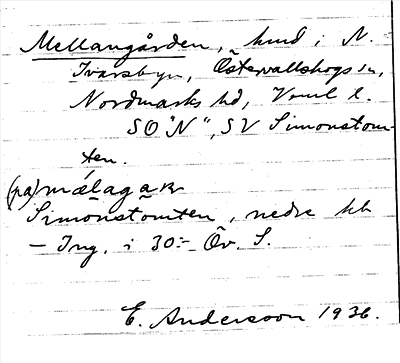 Mellangården, hmd i N.
Ivarsbyn, Östervallskogs sn,
Nordmarks hd, Vrml l.
SO "N", SV Simonstom-
ten.
(pa) mælagaʀ
Simonstomten, nedre kb
– Ing. i 30:– Öv. S.
E. Andersson 1936.